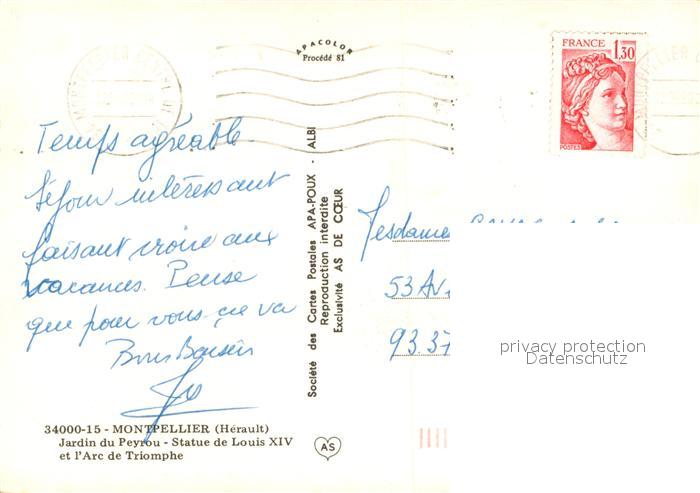 APACOLOR
Procédé 81
FRANCE 1,30
POSTES
Temps agréable.
Séjour intéressant
faisant croire aux
vacances. Pense
que pour vous ça va
Bons Baisers
Société des Cartes Postales APA-POUX - ALBI
Reproduction interdite
Exclusivité AS DE CŒUR
Mesdames
53 Av
93.37
privacy protection
Datenschutz
34000-15 - MONTPELLIER (Hérault)
Jardin du Peyrou - Statue de Louis XIV
et l'Arc de Triomphe
AS